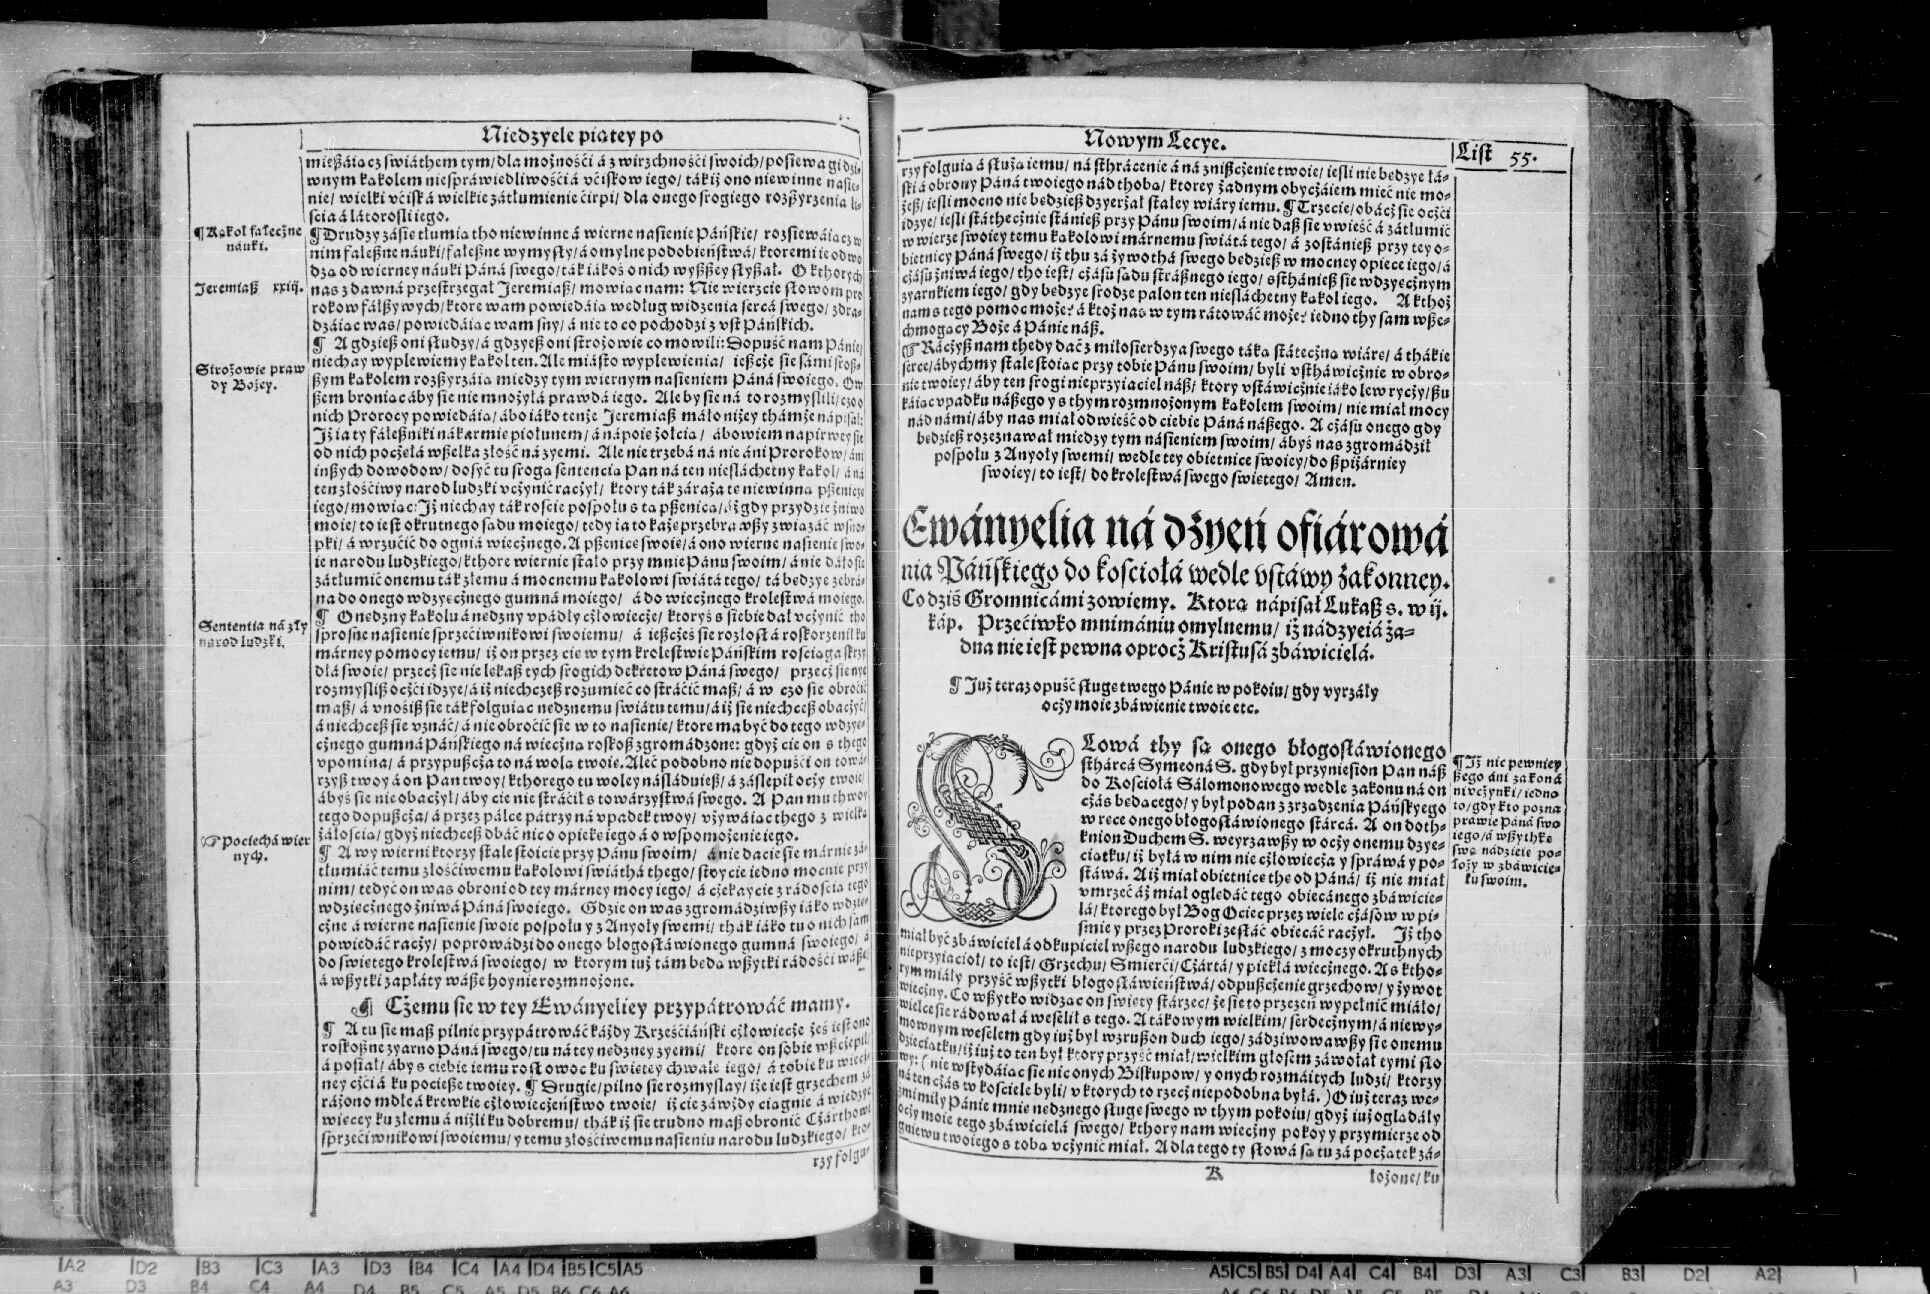 Niedzyele piątey po
mießáiącz swiáthem tym/ dla możnośći á z wirzchnośći swoich/ posiewa gi dzi-
wnym kąkolem niespráwiedliwośći á vćiskow iego/ ták iż ono niewinne nasie-
nie/ wielki vćisk á wielkie zátłumienie ćirpi/ dla onego srogiego rozßyrzenia li-
scia á látorosli iego.
¶ Kąkol fałeczne
náuki.
¶ Drudzy zásię tłumią tho niewinne á wierne nasienie Páńskie/ rozsiewáiąc w
nim fáleßne náuki/ fáleßne wymysły/ á omylne podobieństwá/ ktoremi ie odwo
dzą od wierney náuki Páná swego/ ták iákoś o nich wyßßey słyßał. O kthorych
Jeremiaß xxiij.
nas z dawná przestrzegał Jeremiaß/ mowiąc nam: Nie wierzcie słowom pro
rokow fálßywych/ ktore wam powiedáią według widzenia sercá swego/ zdra-
dzáiąc was/ powiedáiąc wam sny/ á nie to co pochodzi z vst Páńskich.
¶ A gdzieß oni słudzy/ á gdzyeß oni strożowie co mowili: Dopuść nam Pánie/
niechay wyplewiemy kąkol ten. Ale miásto wyplewienia/ ießcże się sámi sroß-
Strożowie praw
dy Bożey.
ßym kąkolem rozßyrzáią miedzy tym wiernym nasieniem Páná swoiego. Ow
ßem bronią cáby się nie mnożyłá prawdá iego. Ale by się ná to rozmyslili/ czo o
nich Prorocy powiedáią/ ábo iáko tenże Jeremiaß máło niżey thámże nápisał:
Jż ia ty fáleßniki nákarmię piołunem/ á nápoię żołcią/ ábowiem napirwey się
od nich pocżęłá wßelka złość ná zyemi. Ale nie trzebá ná nie áni Prorokow/ áni
inßych dowodow/ dosyć tu sroga sentencia Pan ná ten niesláchetny kąkol/ á ná
ten złośćiwy narod ludzki vcżynić racżył/ ktory ták záraża tę niewinną pßenicę
iego/ mowiąc: Jż niechay ták roście pospołu s tą pßenicą/ áż gdy przydzie żniwo
moie/ to iest okrutnego sądu moiego/ tedy ia to każę przebrawßy związáć w sno-
pki/ á wrzućić do ogniá wiecżnego. A pßenicę swoię/ á ono wierne nasienie swo-
ie narodu ludzkiego/ kthore wiernie stało przy mnie Pánu swoim/ á nie dáło się
zátłumić onemu ták złemu á mocnemu kąkolowi swiátá tego/ tá będzye zebrá-
na do onego wdzyęcżnego gumná moiego/ á do wiecżnego krolestwá moiego.
Sententia ná zły
narod ludzki.
¶ O nędzny kąkolu á nędzny vpádły cżłowiecże/ ktoryś s siebie dał vcżynić tho
sprosne nasienie sprzećiwnikowi swoiemu/ á ießcżeś się rozlosł á roskorzenił ku
márney pomocy iemu/ iż on przez cie w tym krolestwie Páńskim rosciąga skrzy
dłá swoie/ przecż się nie lękaß tych srogich dekretow Páná swego/ przecż się nye
rozmysliß ocżći idzye/ á iż niechcżeß rozumieć co stráćić maß/ á w czo się obroćić
maß/ á vnośiß się ták folguiąc nędznemu swiátu temu/ á iż się niechceß obacżyć/
á niechceß się vznáć/ á nie obroćić się w to nasienie/ ktore ma być do tego wdzye-
cżnego gumná Páńskiego ná wiecżną roskoß zgromádzone: gdyż cie on s thego
vpomina/ á przypußcża to ná wolą twoię. Aleć podobno nie dopuśći on towa-
rzyß twoy á on Pan twoy/ kthorego tu woley násláduieß/ á záslepił ocży twoie/
ábyś się nie obacżył/ áby cie nie stráćił s towárzystwá swego. A Pan mu thwoy
tego dopußcża/ á przez pálce pátrzy ná vpadek twoy/ vżywáiąc thego z wielką
żáłością/ gdyż niechceß dbáć nic o opiekę iego á o wspomożenie iego.
☞ Pociechá wier
nych.
¶ A wy wierni ktorzy stale stoicie przy Pánu swoim/ á nie dacie się márnie zá-
tłumiáć temu złośćiwemu kąkolowi swiáthá thego/ stoycie iedno mocnie przy
nim/ tedyć on was obroni od tey márney mocy iego/ á cżekaycie z rádością tego
wdziecżnego żniwá Páná swoiego. Gdzie on was zgromádziwßy iáko wdzię-
cżne á wierne nasienie swoie pospołu y z Anyoły swemi/ thák iáko tu o nich sam
powiedáć racży/ poprowádzi do onego błogosłáwionego gumná swoiego/ á
do swiętego krolestwá swoiego/ w ktorym iuż tám będą wßytki rádośći wáße/
á wßytki zapłáty wáße hoynie rozmnożone.
¶ Cżemu się w tey Ewányeliey przypátrowáć mamy.
¶ A tu się maß pilnie przypátrowáć káżdy Krześćiáński cżłowiecże żeś iest ono
roskoßne zyárno Páná swego/ tu ná tey nędzney zyemi/ ktore on sobie wßcżepił
á posiał/ áby s ciebie iemu rosł owoc ku swiętey chwale iego/ á tobie ku wiecż-
ney cżći á ku pocießе twoiey. ¶ Drugie/ pilno się rozmyslay/ iże iest grzechem zá
ráżono mdłe á krewkie cżłowiecżeństwo twoie/ iż cie záwżdy ciągnie á wiedzye
więcey ku złemu á niżli ku dobremu/ thák iż się trudno maß obronić Cżárthowi
sprzećiwnikowi swoiemu/ y temu złośćiwemu nasieniu narodu ludzkiego/ kto-
rzy folgu-
Nowym Lecye.
List 55.
rzy folguią á służą iemu/ ná sthrácenie á ná znißcżenie twoie/ iesli nie będzye łá-
ski á obrony Páná twoiego nád thobą/ ktorey żadnym obycżáiem mieć nie mo-
żeß/ iesli mocno nie będzieß dzyerżał stałey wiáry iemu. ¶ Trzecie/ obácż się ocżći
idzye/ iesli státhecżnie stánieß przy Pánu swoim/ á nie daß się vwieść á zátłumić
w wierze swoiey temu kąkolowi márnemu swiátá tego/ á zostánieß przy tey o-
bietnicy Páná swego/ iż thu zá żywothá swego będzieß w mocney opiece iego/ á
cżásu żniwá iego/ tho iest/ cżásu sądu stráßnego iego/ sthánieß się wdzyęcżnym
zyarnkiem iego/ gdy będzye srodze palon ten niesláchetny kąkol iego. A kthoż
nam s tego pomoc może? á ktoż nas w tym rátowáć może? iedno thy sam wße-
chmogący Boże á Pánie náß.
☞ Racżyß nam thedy dáć z miłosierdzya swego táką státecżną wiárę/ á thákie
serce/ ábychmy stale stoiąc przy tobie Pánu swoim/ byli vsthawicżnie w obro-
nie twoiey/ áby ten srogi nieprzyiaciel náß/ ktory vstáwicżnie iáko lew rycży/ ßu
káiąc vpadku náßego y s thym rozmnożonym kąkolem swoim/ nie miał mocy
nád námi/ áby nas miał odwieść od ciebie Páná náßego. A cżásu onego gdy
będzieß rozeznawał miedzy tym nasieniem swoim/ ábyś nas zgromádził
pospołu z Anyoły swemi/ wedle tey obietnice swoiey/ do ßpiżárniey
swoiey/ to iest/ do krolestwá swego swiętego/ Amen.
Ewányelia ná dżyeń ofiárowá
nia Páńskiego do kościołá wedle vstáwy zakonney.
Co dziś Gromnicámi zowiemy. Ktorą nápisał Lukaß s. w ij.
káp. Przećiwko mnimániu omylnemu/ iż nádzyeiá żá-
dna nie iest pewna oprocż Kristusá zbáwicielá.
¶ Już teraz opuść sługę twego Pánie w pokoiu/ gdy vyrzáły
ocży moie zbáwienie twoie etc.
SLowá thy są onego błogosłáwionego
sthárcá Symeoná S. gdy był przyniesion Pan náß
do Kościołá Sálomonowego wedle zakonu ná on
cżás będącego/ y był podan z zrządzenia Páńskyego
w ręce onego błogosłáwionego stárcá. A on doth-
knion Duchem S. weyrzawßy w ocży onemu dzye-
ciątku/ iż byłá w nim nie cżłowiecża y spráwá y po-
stáwá. A iż miał obietnicę thę od Páná/ iż nie miał
vmrzeć áż miał oględáć tego obiecánego zbáwicie-
lá/ ktorego był Bog Ociec przez wiele cżásow w pi-
śmie y przez Proroki zesłáć obiecáć racżył. Jż tho
¶ Jż nic pewniey
ßego áni zakona
ni vcżynki/ iedno
to/ gdy kto pozna
prawie Páná swo
iego/ á wßythkę
swą nádzieię po-
łoży w zbáwicie-
lu swoim.
miał być zbáwiciel á odkupiciel wßego narodu ludzkiego/ z moczy okruthnych
nieprzyiacioł/ to iest/ Grzechu/ Smierći/ Cżártá/ y piekłá wiecżnego. A s ktho-
rym miáły przyść wßytki błogosłáwieństwá/ odpußcżenie grzechow/ y żywot
wiecżny. Co wßytko widząc on swięty stárzec/ że się to przezeń wypełnić miáło/
wielce się rádował á weselił s tego. A tákowym wielkim/ serdecżnym/ á niewy-
mownym weselem gdy iuż był wzrußon duch iego/ zádziwowawßy się onemu
dzieciątku/ iż iuż to ten był ktory przyść miał/ wielkim głosem záwołał tymi sło
wy: (nie wstydáiąc się nic onych Biskupow/ y onych rozmáitych ludzi/ ktorzy
ná ten cżás w kościele byli/ v ktorych to rzecż niepodobna byłá.) O iuż teraz we-
zmi miły Pánie mnie nędznego sługę swego w thym pokoiu/ gdyż iuż oglądáły
ocży moie tego zbáwicielá swego/ kthory nam wiecżny pokoy y przymierze od
gniewu twoiego s tobą vcżynić miał. A dla tego ty słowá są tu zá pocżątek zá-
K
łożone/ ku